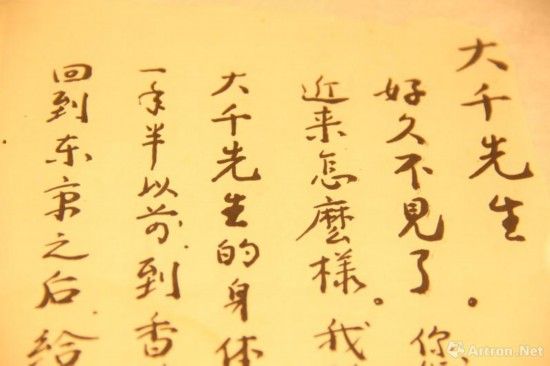 大千先生
好久不見了。你
近来怎麼樣。我
大千先生的身体
一年半以前.到香
回到东京之后.给
Artron.Net